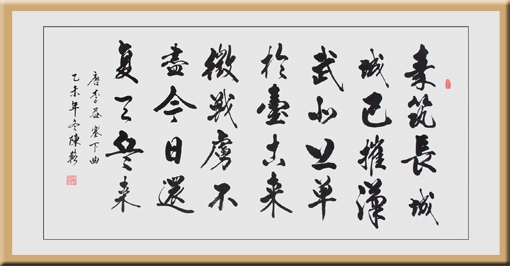 秦筑長城
城已摧漢
武北上单
於臺古来
徵战虏不
盡今日還
复天兵来
唐李益塞下曲
乙未年冬陳